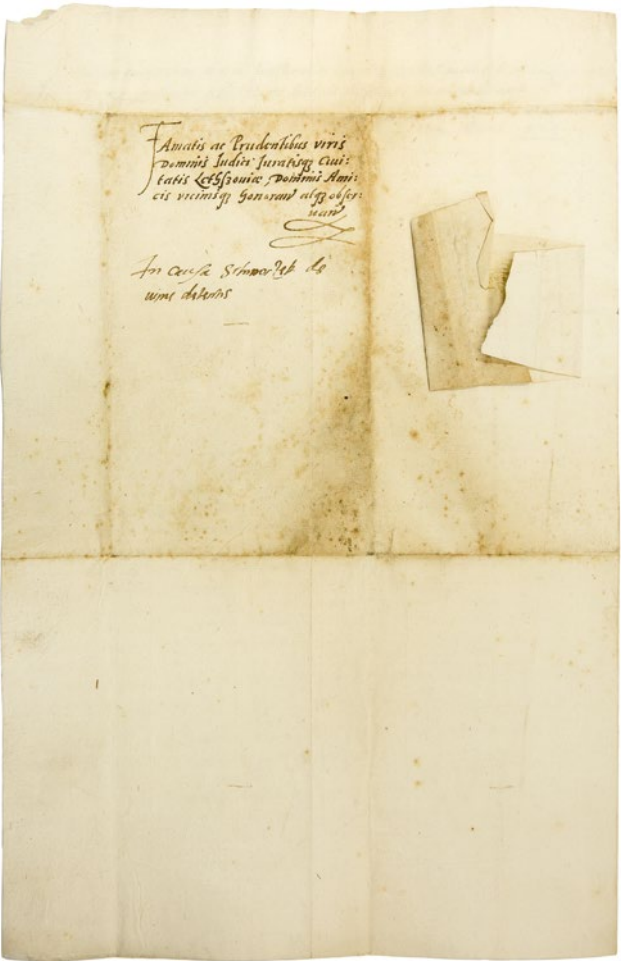 Famatis ac Prudentibus viris
Dominis Iudici Iuratisqꝫ Ciui:
tatis Lethszouiæ, Dominis Ami:
cis vicinisqꝫ honoran̄ atqꝫ obser:
uan̄
In causa Schwarcz de